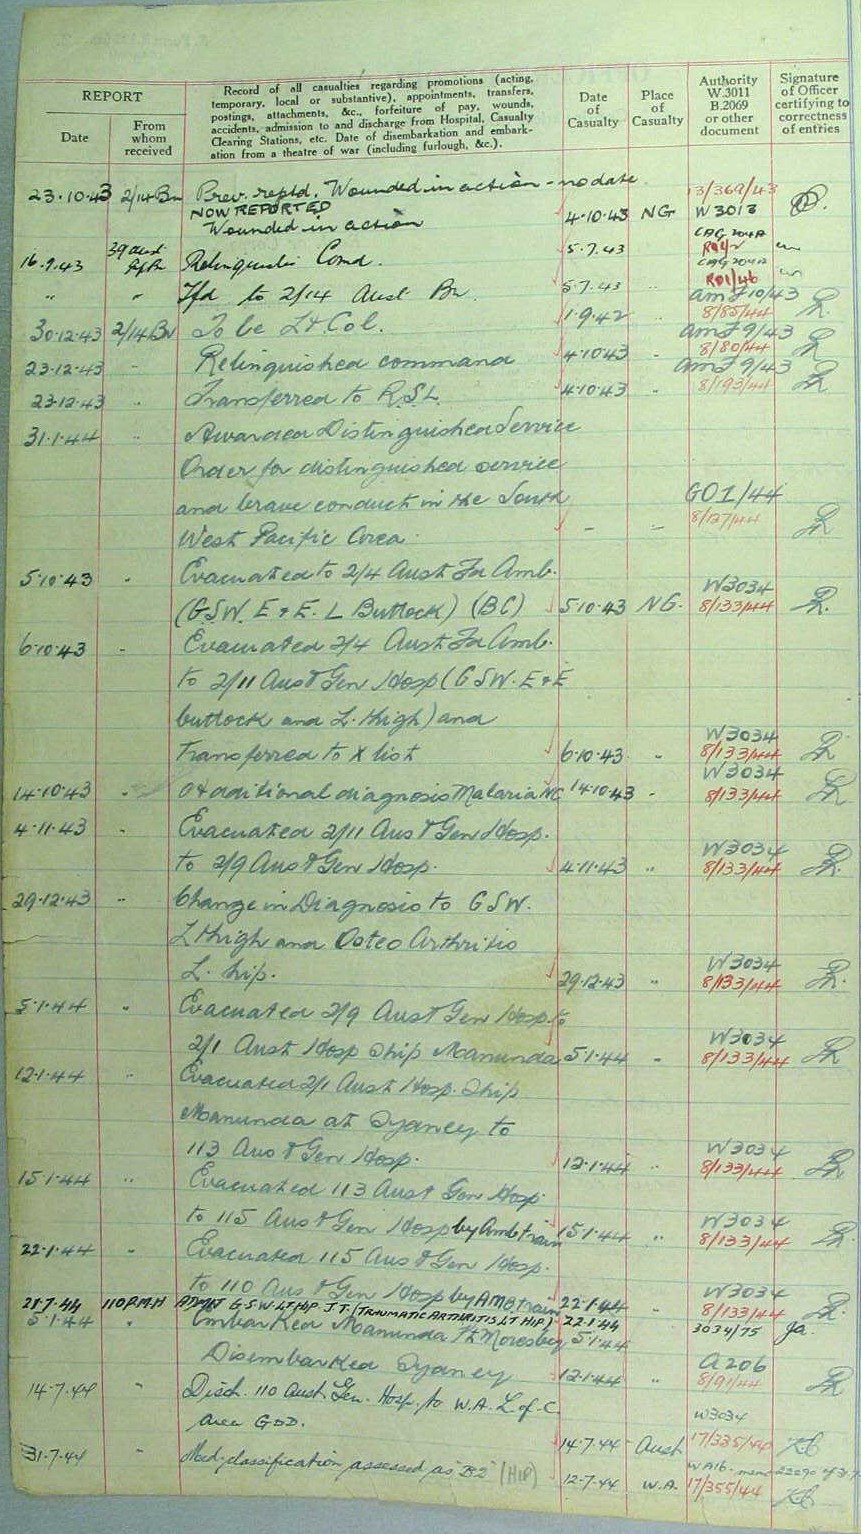 REPORT
Date
From whom received
Record of all casualties regarding promotions (acting,
temporary, local or substantive), appointments, transfers,
postings, attachments, &c., forfeiture of pay, wounds,
accidents, admission to and discharge from Hospital, Casualty
Clearing Stations, etc. Date of disembarkation and embark-
ation from a theatre of war (including furlough, &c.).
Date of Casualty
Place of Casualty
Authority W.3011 B.2069 or other document
Signature of Officer certifying to correctness of entries
23.10.43 2/14 Bn Prev. reptd. Wounded in action - no date 13/369/43
NOW REPORTED
Wounded in action 4.10.43 NG W3013
16.9.43 39 Aust Inf Bn Relinquishes Comd. 5.7.43 CAG 204A
" " Tfd to 2/14 Aust Bn 5.7.43 " CAG 204A RO1/46
30.12.43 2/14 Bn To be Lt Col. 1.9.42 " amf 10/43 8/85/44
23.12.43 " Relinquished command 4.10.43 " amf 9/43 8/80/44
23.12.43 " Transferred to R.S.L. 4.10.43 " amf 9/43 8/193/44
31.1.44 " Awarded Distinguished Service
Order for distinguished service
and brave conduct in the South
West Pacific Area. - - GO1/44 8/127/44
5.10.43 " Evacuated to 2/4 Aust Fd Amb.
(GSW. E & E. L Buttock) (BC) 5.10.43 NG. W3034 8/133/44
6.10.43 " Evacuated 2/4 Aust Fd Amb.
to 2/11 Aust Gen Hosp (GSW. E & E
buttock and L. thigh) and
Transferred to X list 6.10.43 " W3034 8/133/44
14.10.43 " additional diagnosis Malaria NC 14.10.43 " W3034 8/133/44
4.11.43 " Evacuated 2/11 Aust Gen Hosp.
to 2/9 Aust Gen Hosp. 4.11.43 " W3034 8/133/44
29.12.43 " Change in Diagnosis to GSW.
L thigh and Osteo Arthritis
L. hip. 29.12.43 " W3034 8/133/44
5.1.44 " Evacuated 2/9 Aust Gen Hosp. to
2/1 Aust Hosp Ship Manunda 5.1.44 " W3034 8/133/44
12.1.44 " Evacuated 2/1 Aust Hosp. Ship
Manunda at Sydney to
113 Aust Gen Hosp. 12.1.44 " W3034 8/133/44
15.1.44 " Evacuated 113 Aust Gen Hosp.
to 115 Aust Gen Hosp by Amb train 15.1.44 " W3034 8/133/44
22.1.44 " Evacuated 115 Aust Gen Hosp.
to 110 Aust Gen Hosp by AMB train 22.1.44 " W3034 8/133/44
21.7.44 110 P.M.H ADMIT G.S.W. LT HIP J.T. (TRAUMATIC ARTHRITIS LT HIP) 22.1.44 3034/75 Ja.
5.1.44 " Embarked Manunda Pt Moresby 5.1.44
Disembarked Sydney 12.1.44 " A206 8/91/44
14.7.44 " Disch. 110 Aust Gen. Hosp. to W.A. L of C
Area GDD. 14.7.44 Aust W3034 17/335/44
31.7.44 " Med. classification assessed as "B2" (HIP) 12.7.44 W.A. 17/355/44